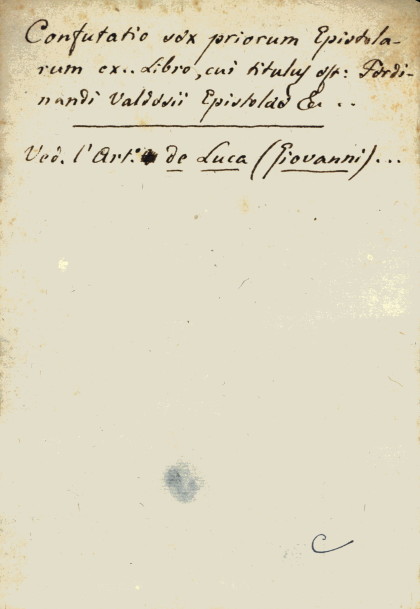 Confutatio sex priorum Epistola-
rum ex.. Libro, cui titulus est: Ferdi-
nandi Valdesii Epistolae &c...
Ved. l'Art.º de Luca (Giovanni)...
C